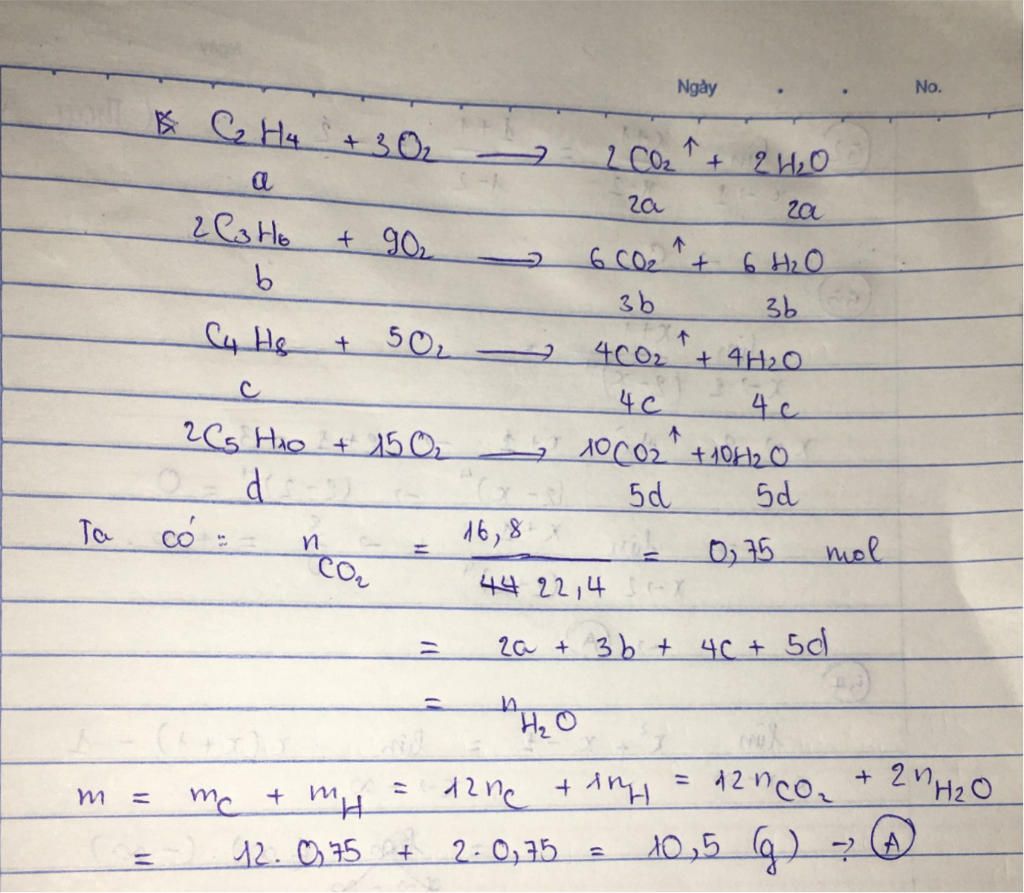 Ngày . . No.
C2H4 + 3O2 → 2CO2↑ + 2H2O
a 2a 2a
2C3H6 + 9O2 → 6CO2↑ + 6H2O
b 3b 3b
C4H8 + 5O2 → 4CO2↑ + 4H2O
c 4c 4c
2C5H10 + 15O2 → 10CO2↑ + 10H2O
d 5d 5d
Ta có: nCO2 = 16,8 / 44 22,4 = 0,75 mol
= 2a + 3b + 4c + 5d
= nH2O
m = mC + mH = 12nC + 1nH = 12nCO2 + 2nH2O
= 12. 0,75 + 2. 0,75 = 10,5 (g) → A